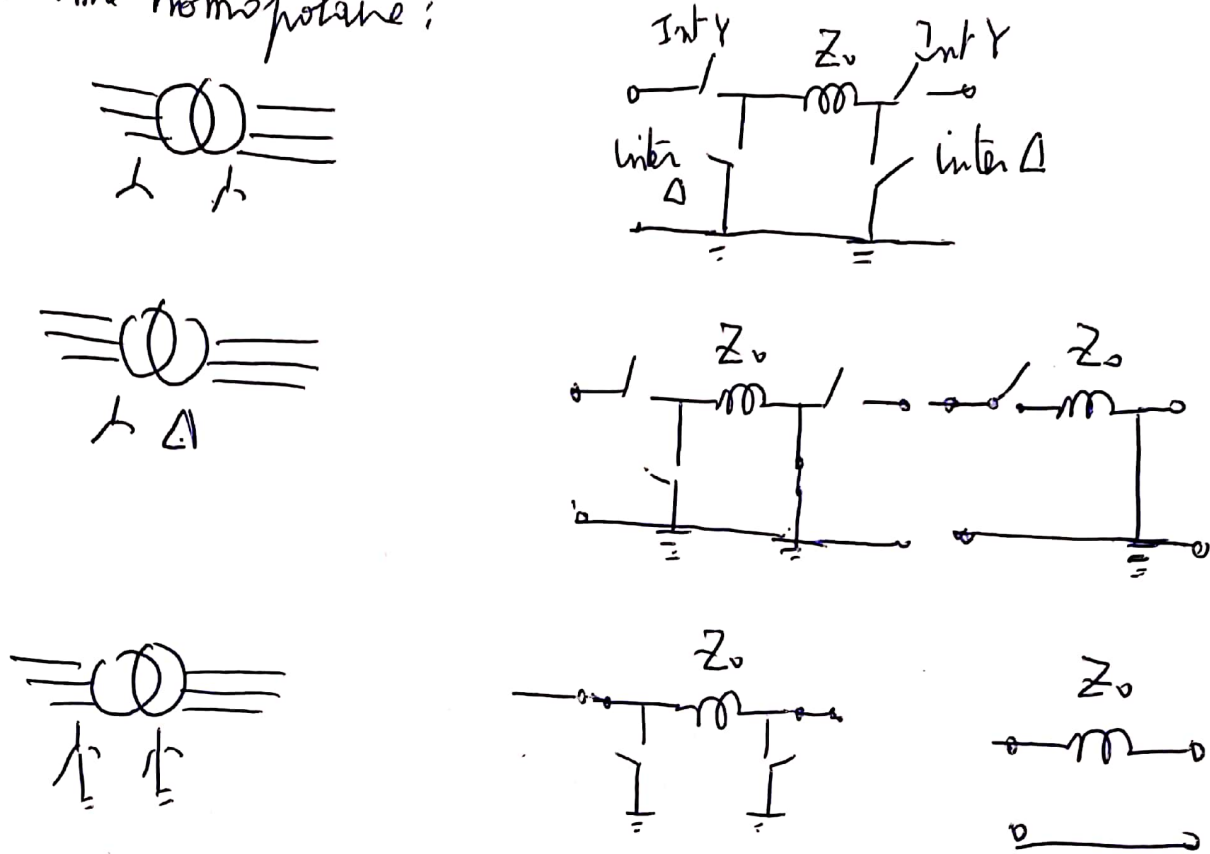 homopolaire :
Int Y
Z₀
Int Y
inter
Δ
inter Δ
Z₀
Z₀
Δ
Z₀
Z₀